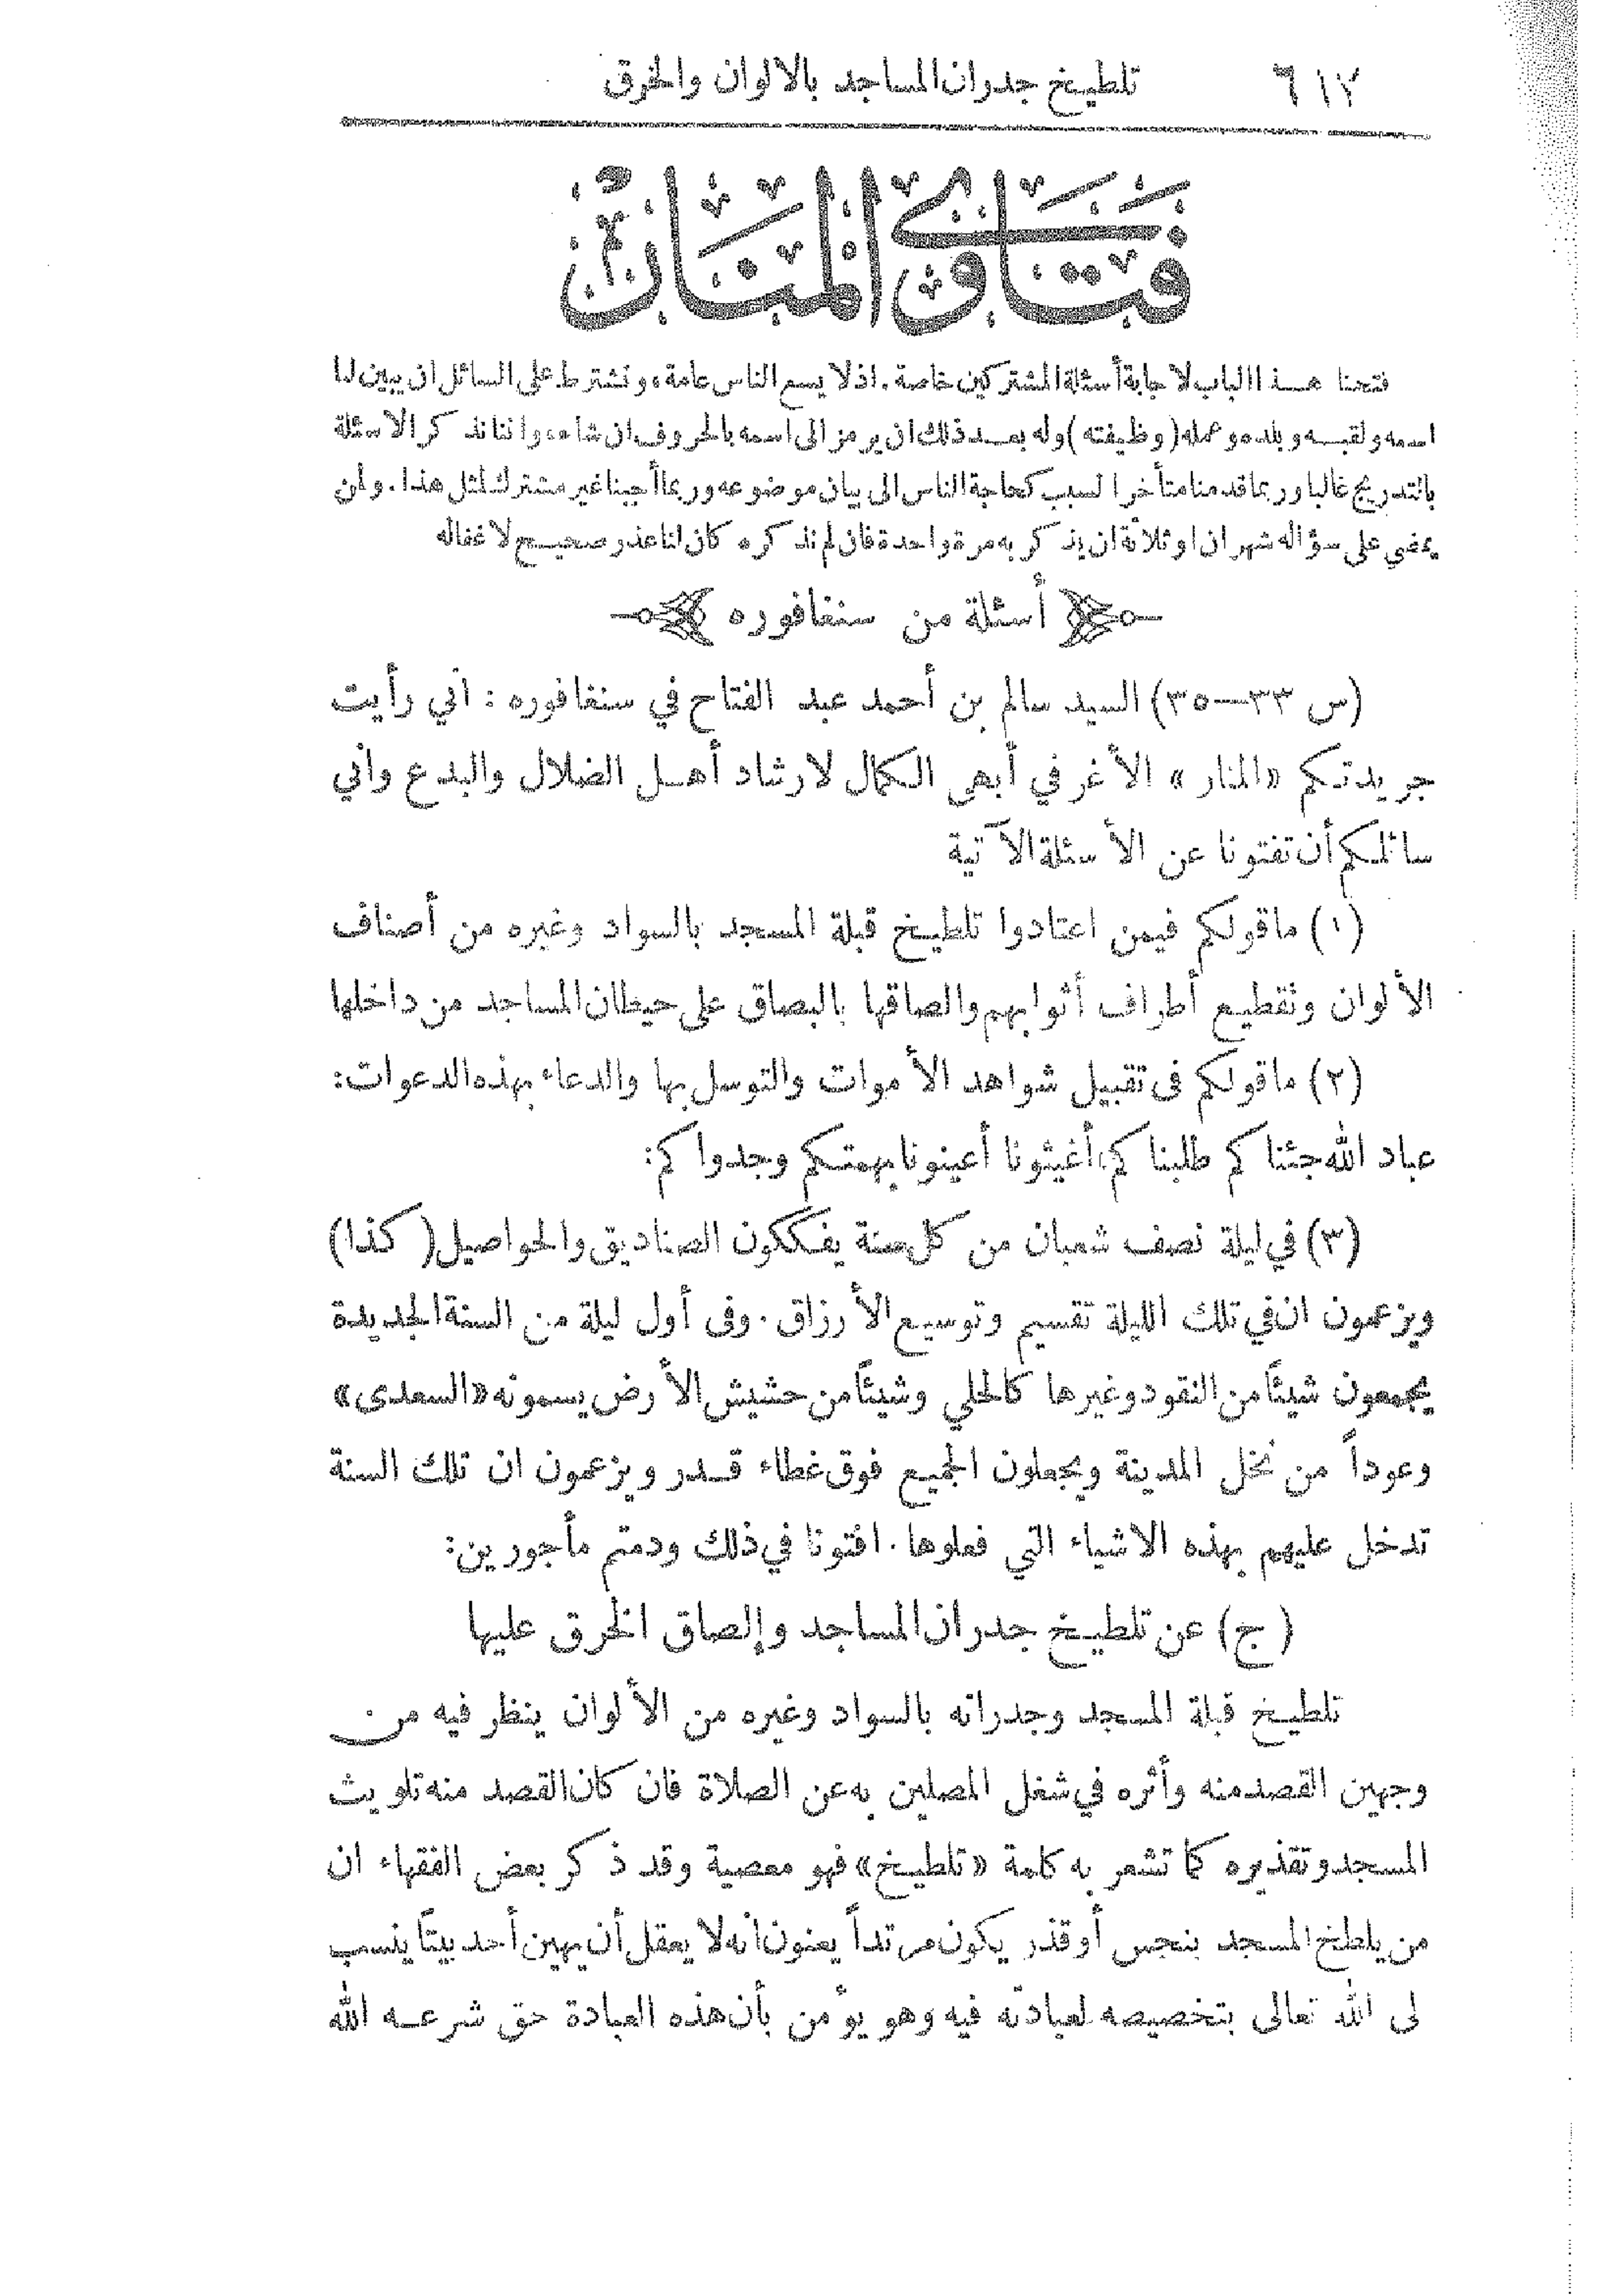 ٦١٢ تلطيخ جدران المساجد بالالوان والخرق
فتاوى المنار
فتحنا هذا الباب لاجابة أسئلة المشتركين خاصة ، اذ لا يسع الناس عامة ، ونشترط على السائل ان يبين لنا
اسمه ولقبه وبلده وعمله (وظيفته) وله بعد ذلك ان يرمز الى اسمه بالحروف ان شاء ، واننا نذكر الاسئلة
بالتدريج غالبا وربما قدمنا متأخرا لسبب كحاجة الناس الى بيان موضوعه وربما أجبنا غير مشترك لمثل هذا . ولمن
يمضي على سؤاله شهران او ثلاثة ان يذكر به مرة واحدة فان لم نذكره كان لنا عذر صحيح لاغفاله
أسئلة من سنغافوره
(س ٣٣—٣٥) السيد سالم بن أحمد عبد الفتاح في سنغافوره : اني رأيت
جريدتكم «المنار» الأغر في أبهى الكمال لارشاد أهل الضلال والبدع واني
سائلكم أن تفتونا عن الأسئلة الآتية
(١) ماقولكم فيمن اعتادوا تلطيخ قبلة المسجد بالسواد وغيره من أصناف
الألوان وتقطيع أطراف أثوابهم والصاقها بالبصاق على حيطان المساجد من داخلها
(٢) ماقولكم فى تقبيل شواهد الأموات والتوسل بها والدعاء بهذه الدعوات:
عباد الله جئناكم طلبناكم، أغيثونا أعينونا بهمتكم وجدواكم:
(٣) في ليلة نصف شعبان من كل سنة يفككون الصناديق والحواصيل (كذا)
ويزعمون ان في تلك الليلة تقسيم وتوسيع الأرزاق . وفى أول ليلة من السنة الجديدة
يجمعون شيئًا من النقود وغيرها كالحلي وشيئًا من حشيش الأرض يسمونه «السعدى»
وعوداً من نخل المدينة ويجعلون الجميع فوق غطاء قدر ويزعمون ان تلك السنة
تدخل عليهم بهذه الاشياء التي فعلوها . افتونا في ذلك ودمتم مأجورين:
(ج) عن تلطيخ جدران المساجد وإلصاق الخرق عليها
تلطيخ قبلة المسجد وجدرانه بالسواد وغيره من الألوان ينظر فيه من
وجهين القصد منه وأثره في شغل المصلين به عن الصلاة فان كان القصد منه تلويث
المسجد وتقذيره كما تشعر به كلمة «تلطيخ» فهو معصية وقد ذكر بعض الفقهاء ان
من يلطخ المسجد بنجس أو قذر يكون مرتداً يعنون انه لا يعقل أن يهين أحد بيتًا ينسب
لى الله تعالى بتخصيصه لعبادته فيه وهو يؤمن بأن هذه العبادة حق شرعه الله